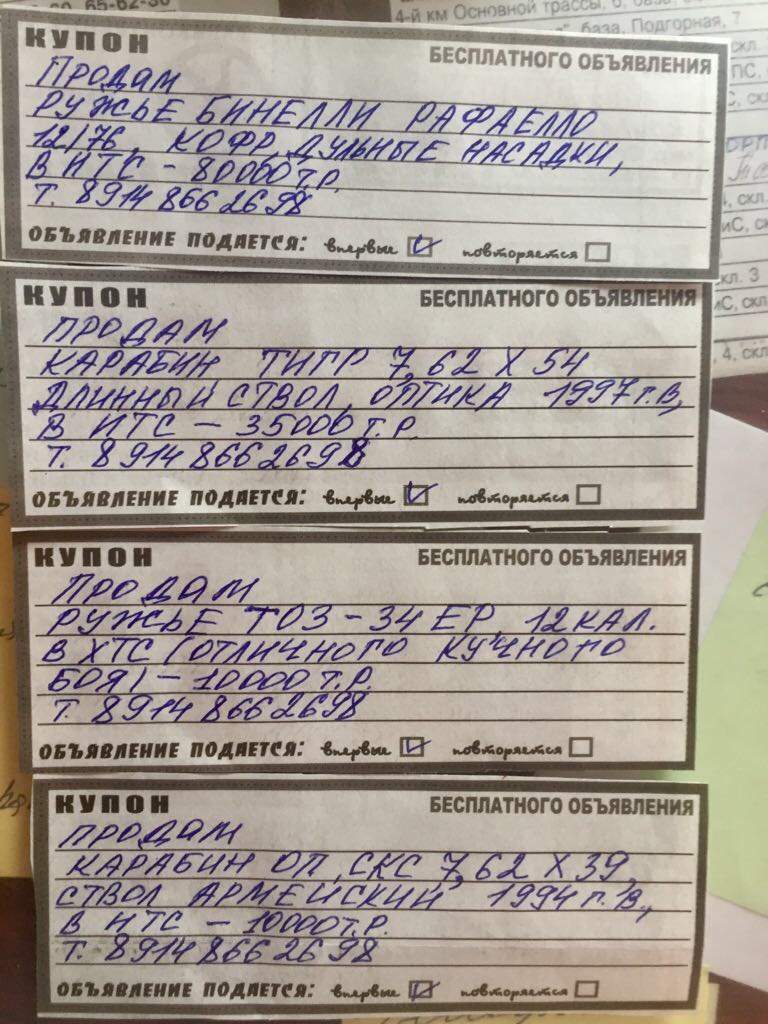 65-62-30
4-й км Основной трассы, 6, база
база, Подгорная, 7
КУПОН
БЕСПЛАТНОГО ОБЪЯВЛЕНИЯ
ПРОДАМ
РУЖЬЕ БИНЕЛЛИ РАФАЕЛЛО
12/76, КОФР, ДУЛЬНЫЕ НАСАДКИ,
В ИТС - 80000 Т.Р.
Т. 8914 866 2698
ОБЪЯВЛЕНИЕ ПОДАЕТСЯ: впервые повторяется
КУПОН
БЕСПЛАТНОГО ОБЪЯВЛЕНИЯ
ПРОДАМ
КАРАБИН ТИГР 7,62 Х 54
ДЛИННЫЙ СТВОЛ, ОПТИКА 1997 г.В,
В ИТС - 35000 Т.Р.
Т. 8914 866 2698
ОБЪЯВЛЕНИЕ ПОДАЕТСЯ: впервые повторяется
КУПОН
БЕСПЛАТНОГО ОБЪЯВЛЕНИЯ
ПРОДАМ
РУЖЬЕ ТОЗ-34 ЕР, 12 КАЛ.
В ХТС (ОТЛИЧНОГО КУЧНОГО
БОЯ) - 10000 Т.Р.
Т. 8914 866 2698
ОБЪЯВЛЕНИЕ ПОДАЕТСЯ: впервые повторяется
КУПОН
БЕСПЛАТНОГО ОБЪЯВЛЕНИЯ
ПРОДАМ
КАРАБИН ОП, СКС 7,62 Х 39,
СТВОЛ АРМЕЙСКИЙ, 1994 г. В.,
В НТС - 10000 Т.Р.
Т. 8914 866 26 98
ОБЪЯВЛЕНИЕ ПОДАЕТСЯ: впервые повторяется